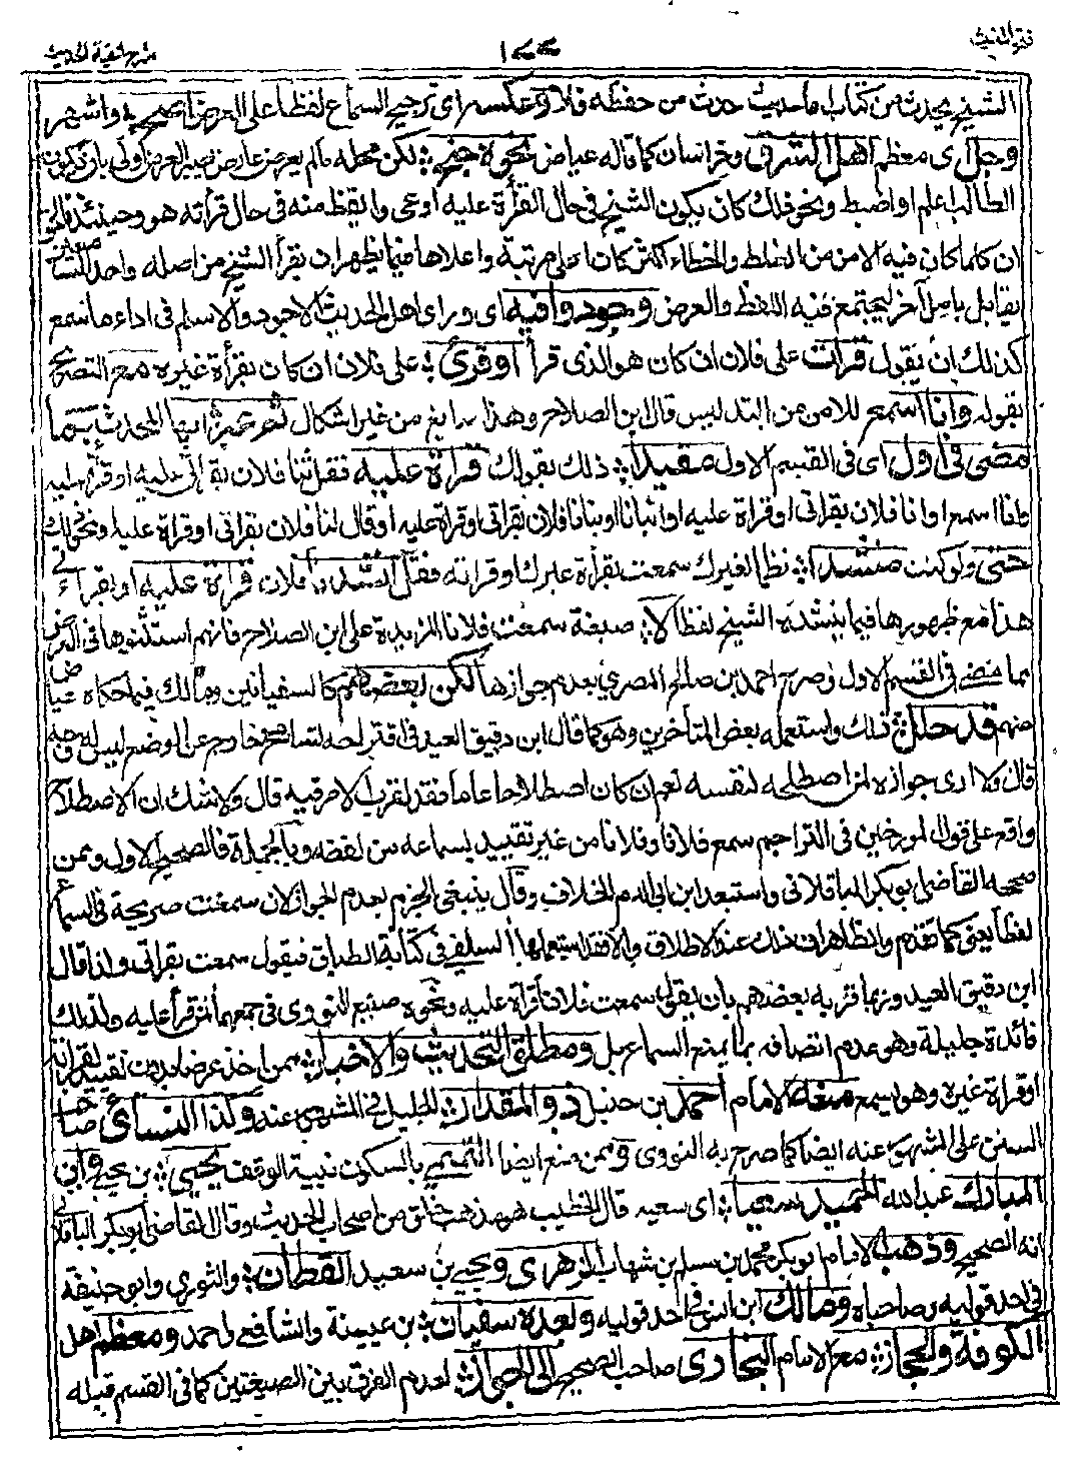 فتح المغيث
١٧٧
شرح الفية الحديث
الشيخ يحدث من كتاب ما حديث حدث من حفظه فلا وعكسه اى ترجيح السماع لفظا على العرض اصح واشهر
وجل اى معظم اهل الشرق وخراسان كما قاله عياض نحوه جنح لكن محله ما لم يعرض عارض يصير العرض اولى بان يكون
الطالب اعلم او اضبط ونحو ذلك كان يكون الشيخ فى حال القرأة عليه اوعى وايقظ منه فى حال قرأته هو وحينئذ فالحق
ان كلما كان فيه الامن من الغلط والخطاء اكثر كان اعلى مرتبة واعلاها فيما يظهر ان يقرأ الشيخ من اصله واحد السامعين
يقابل باصل آخر ليجتمع فيه اللفظ والعرض وجودوا فيه اى وراى اهل الحديث الاجود والاسلم فى اداء ما سمع
كذلك ان يقول قرأت على فلان ان كان هو الذى قرأ او قرئ على فلان ان كان بقرأة غيره مع التصريح
بقوله وانا اسمع للامن من التدليس قال ابن الصلاح وهذا سايغ من غير اشكال ثم عبر ايها المحدث بما
مضى فى اول اى فى القسم الاول مقيدا ذلك بقولك قراءة عليه فقل ثنا فلان بقرأتى عليه او قرأة عليه
وانا اسمع او انا فلان بقراتى او قراة عليه او انبانا او نبانا فلان بقراتى او قراة عليه او قال لنا فلان بقراتى او قراة عليه او نحو ذلك
حتى ولو كنت منشدا نظما لغيرك سمعت بقرأة غيرك او قرأته فقل انشدنا فلان قراءة عليه او بقراءتى
هذا مع ظهورها فيما ينشده الشيخ لفظا لا صيغة سمعت فلانا المزيدة على ابن الصلاح فانهم استثنوها فى العرض
مما مضى فى القسم الاول وصرح احمد بن صالح المصرى بعدم جوازها لكن بعضهم كالسفيانين ومالك فيما حكاه عياض
عنهم قد حللا ذلك واستعمله بعض المتأخرين وهو كما قال ابن دقيق العيد فى اقتراحه تسامح خارج عن الوضع ليس له وجه
قال ولا ارى جوازه لمن اصطلحه لنفسه نعم ان كان اصطلاحا عاما فقد يقرب الامر فيه قال ولا شك ان الاصطلاح
واقع على قول المورخين فى التراجم سمع فلانا وفلانا من غير تقييد بسماعه من لفظه وبالجملة فالصحيح الاول وممن
صححه القاضى ابو بكر الباقلانى واستبعد ابن ابى الدم الخلاف وقال ينبغى الجزم بعدم الجواز لان سمعت صريحة فى السماع
لفظا يعنى كما تقدم والظاهر ان ذلك عند الاطلاق والا فقد استعملها السلفى فى كتابة الطباق فيقول سمعت بقراتى ولذا قال
ابن دقيق العيد وربما قربه بعضهم بان يقول سمعت فلانا قرأة عليه ونحوه صنيع النووى فى جمعهما لمن قرأ عليه ولذلك
فائدة جليلة وهو عدم اتصافه بما يمنع السماع بل ومطلق التحديث والاخبار ممن اخذ عرضا بدون تقييد بقراته
او قراءة غيره وهو يسمع منعه الامام احمد بن حنبل ذو المقدار الجليل فى المشهور عنه وكذا النسائى صاحب
السنن على المشهور عنه ايضا كما صرح به النووى وممن منع ايضا التميمى بالسكون بنية الوقف يحيى بن يحيى وابن
المبارك عبد الله الحميد سعيا اى سعيه قال الخطيب هو مذهب خلق من اصحاب الحديث وقال القاضى ابو بكر الباقلانى
انه الصحيح وذهب الامام ابو بكر محمد بن مسلم بن شهاب الزهرى ويحيى بن سعيد القطان والثورى وابو حنيفة
فى احد قوليه وصاحباه ومالك ابن انس فى احد قوليه وبعده سفيان بن عيينة والشافعى واحمد ومعظم اهل
الكوفة والحجاز مع الامام البخارى صاحب الصحيح الى الجواز لعدم الفرق بين الصيغتين كما فى القسم قبله